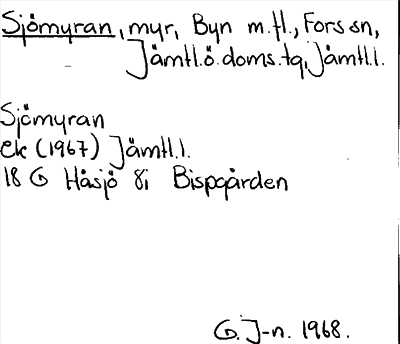 Sjömyran, myr, Byn m.fl., Fors sn,
Jämtl.ö.doms.tg, Jämtl.l.
Sjömyran
ek (1967) Jämtl.l.
18 G Håsjö 8i Bispgården
G. J-n. 1968.